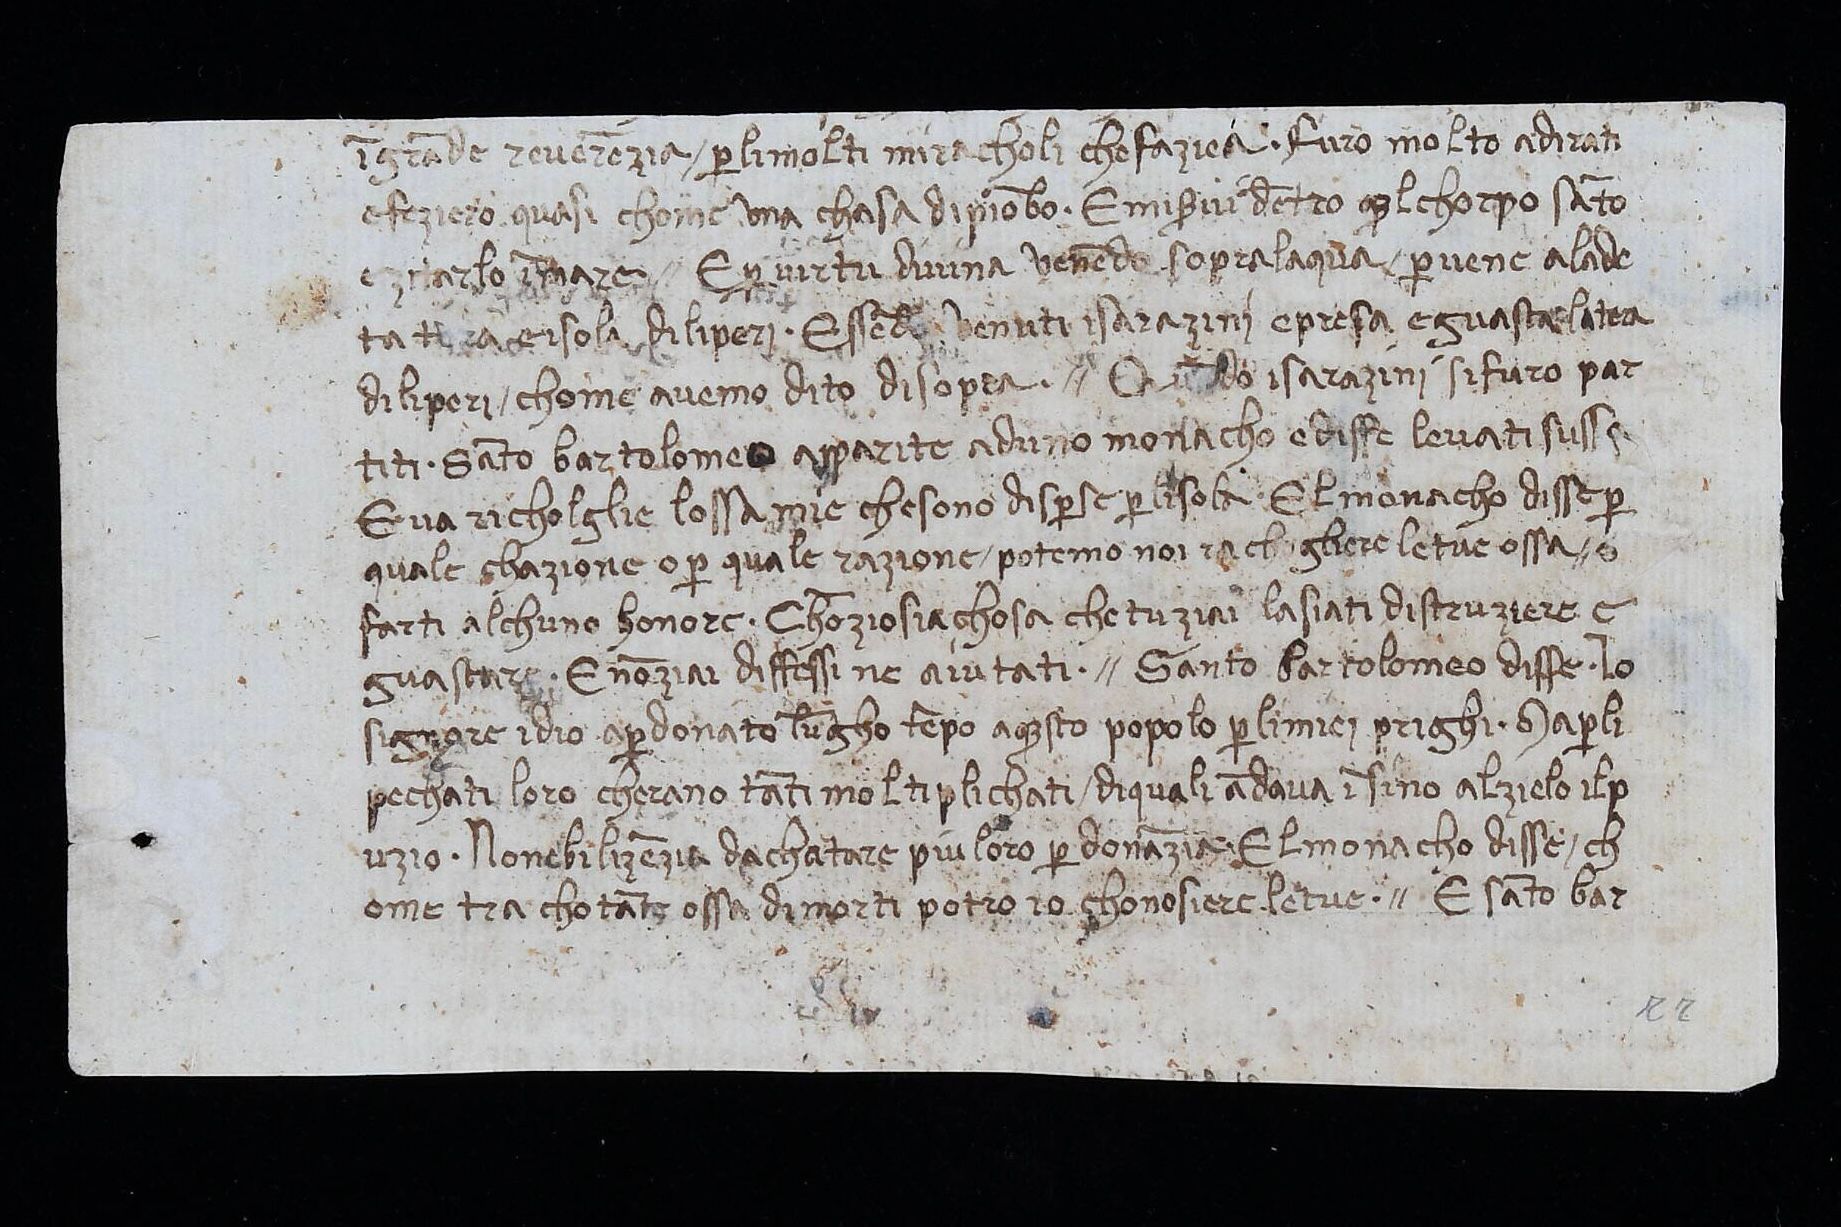 ī grāde reuerēzia / ꝑ li molti miracholi che fazieá · furo molto adirati
e feziero quasi chome vna chasa di piōbo · E misiui dētro q̄l chorpo sāto
e zitarlo ī mare // E ꝑ uirtu diuina venēdo sopra laqua / ꝑuene a la de
ta tera e isola di liperi · Essēdo venuti i sarazini e presa e guasta la tera
di liperi / chome auemo dito di sopra · // Quādo i sarazini si furo par
titi · Sāto bartolomeo apparite ad uno monacho e disse leuati suss ·
E ua richolglie lossa mie che sono disꝑse ꝑ lisola · El monacho disse ꝑ
quale chazione o ꝑ quale razione / potemo noi rachogliere le tue ossa // o
farti alchuno honore · Chōziosia chosa che tu ziai lasiati distruziere e
guastare · E nō ziai diffessi ne aiutati · // Santo bartolomeo disse · lo
signore idio a ꝑdonato lūgho tēpo a q̄sto popolo ꝑ li miei prighi · Ma ꝑ li
pechati loro cherano tāti moltiplichati / di quali ādaua īsino al zielo il p
uzio · Non ebi lizēzia dachatare piu loro ꝑdonāzia · El monacho disse / ch
ome tra chotāte ossa di morti potro io chonosiere le tue · // E sāto bar
22